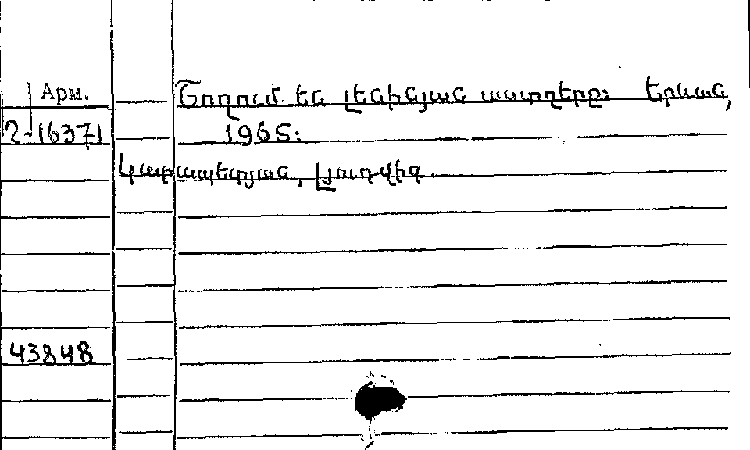 Արմ. Շողում են լենինյան աստղերը։ Երևան,
2-16371 1965։
Կարապետյան, Լյուդվիգ
43848